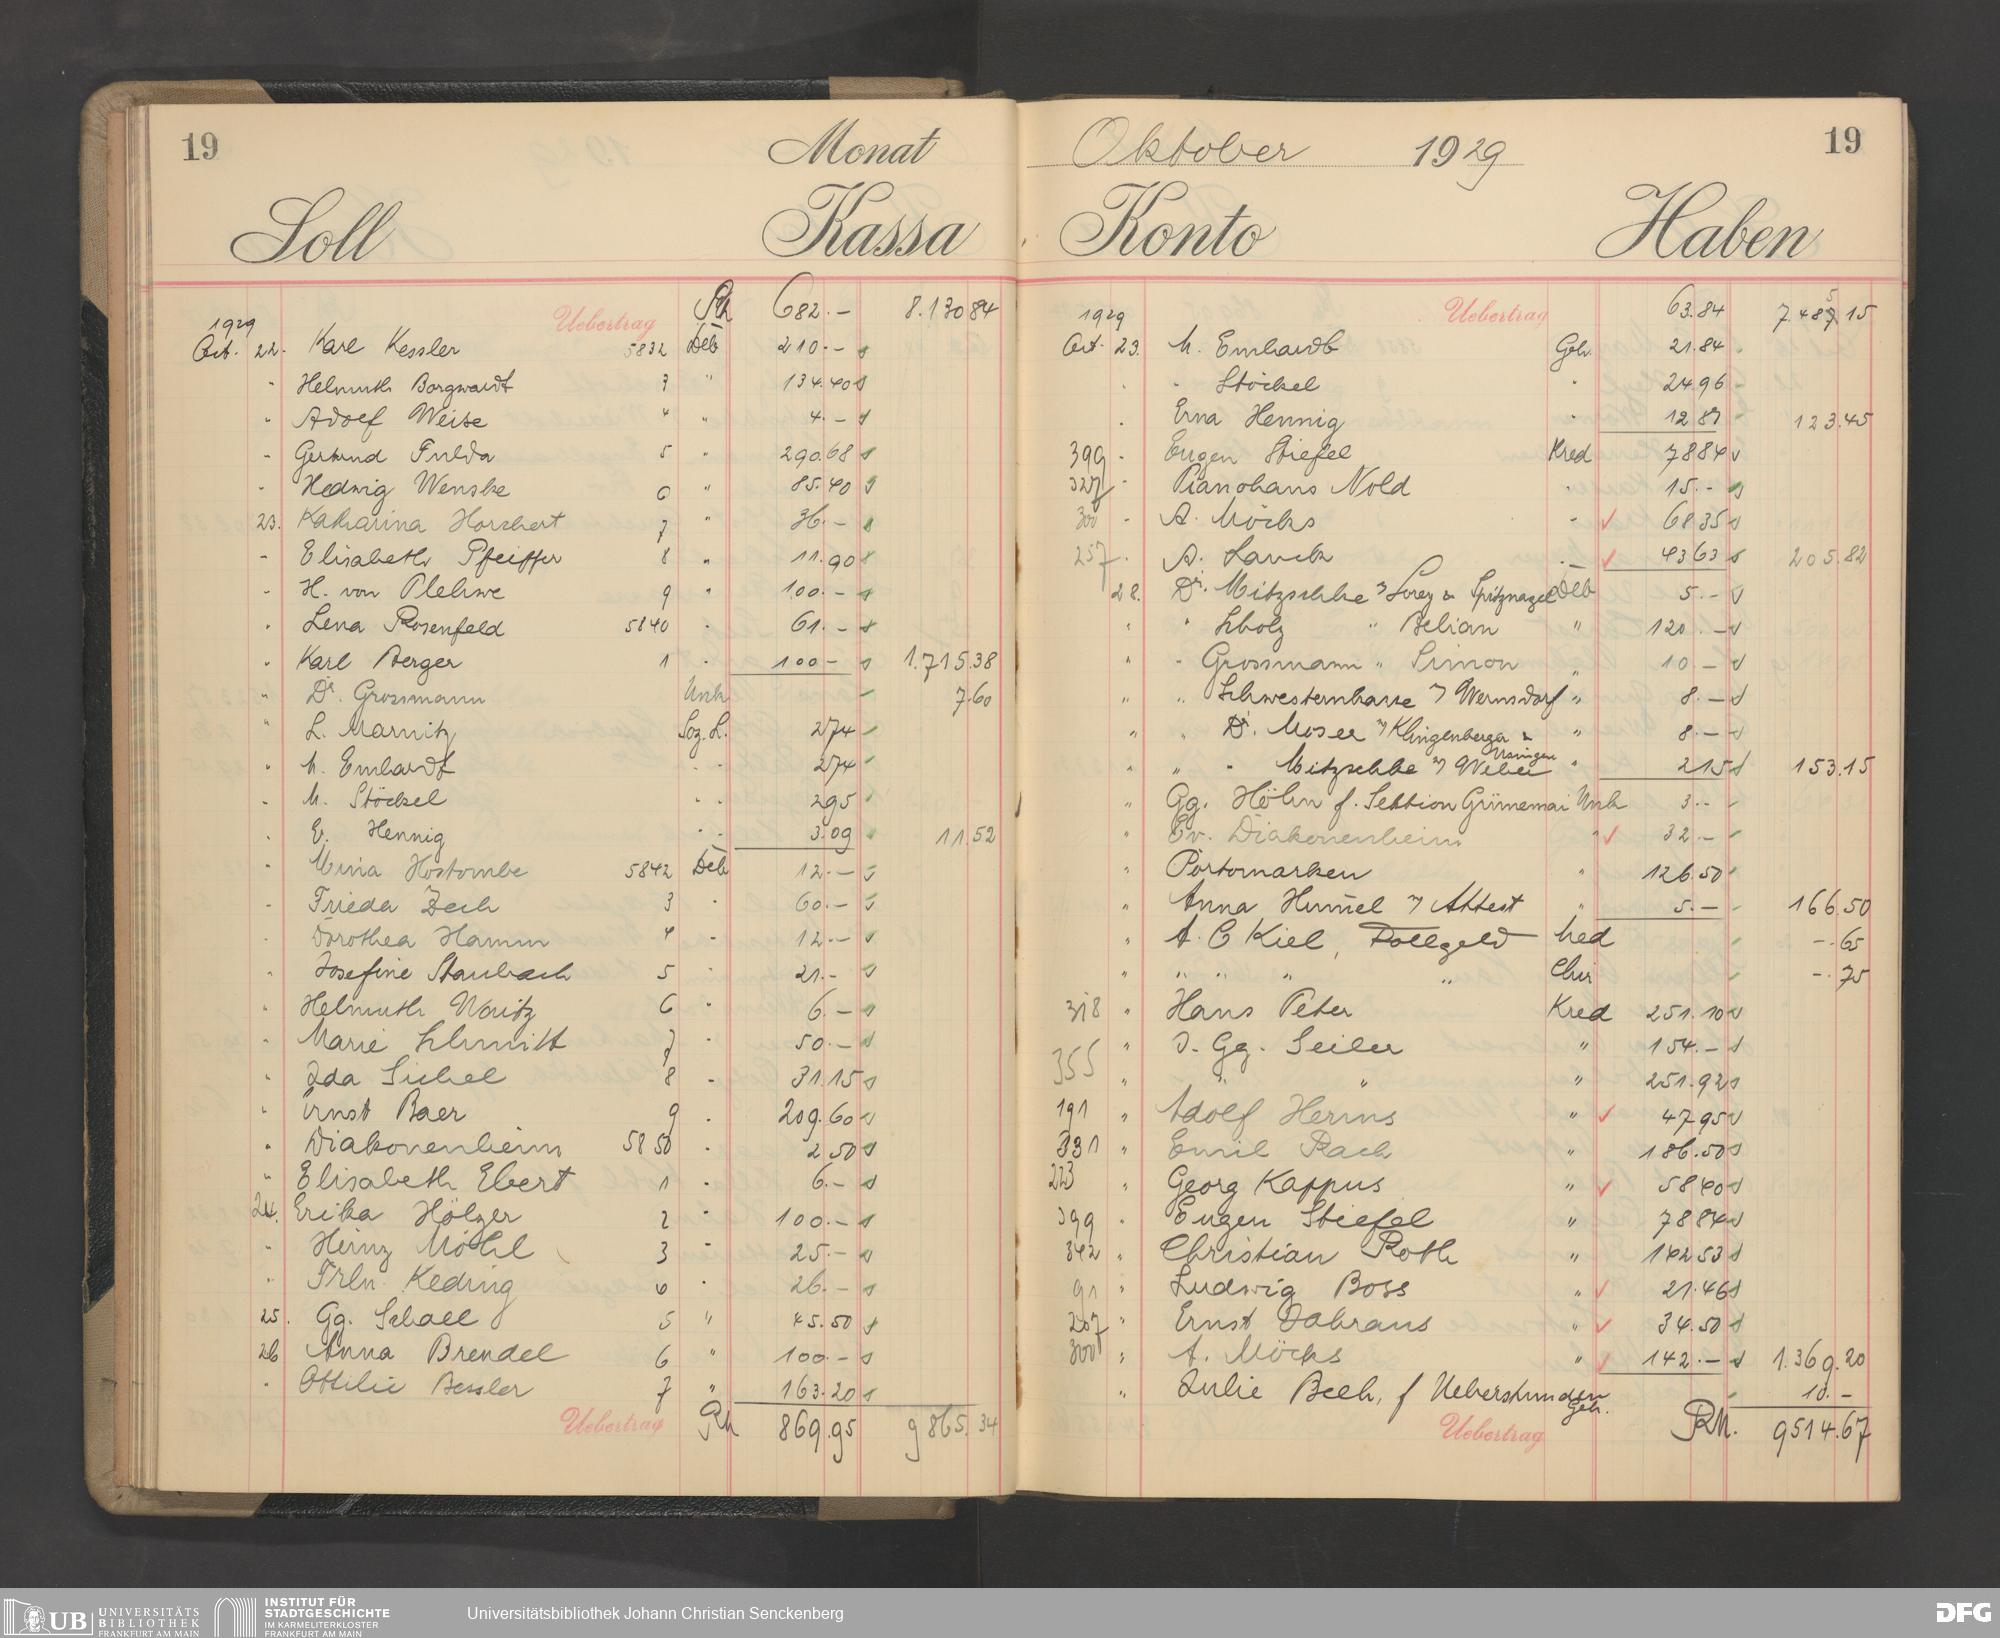 19
Monat
Soll Kassa
Uebertrag Rh 682.- 8.130 84
1929
Oct. 22. Karl Kessler 5832 Deb 210.-
" Helmuth Borgwardt 3 " 134.40
" Adolf Weise 4 " 4.-
" Gertrud Fulda 5 " 290.68
" Hedwig Wenske 6 " 85.40
23. Katharina Horchert 7 " 36.-
" Elisabeth Pfeiffer 8 " 11.90
" H. von Plehwe 9 " 100.-
" Lena Rosenfeld 5840 " 61.-
" Karl Berger 1 " 100.- 1.715.38
" Dr. Grossmann Unk 7.60
" L. Marnitz Soz. L. 2 74
" M. Emhardt " " 2 74
" M. Stöckel " " 2 95
" E. Hennig " " 3.09 11.52
" Mina Hostombe 5842 Deb 12.-
" Frieda Zech 3 " 60.-
" Dorothea Hamm 4 " 12.-
" Josefine Staubach 5 " 21.-
" Helmuth Woritz 6 " 6.-
" Marie Schmitt 7 " 50.-
" Ida Sichel 8 " 31.15
" Ernst Baer 9 " 209.60
" Diakonenheim 5850 " 2.50
" Elisabeth Ebert 1 " 6.-
24. Erika Hölzer 2 " 100.-
" Heinz Möhl 3 " 25.-
" Frln. Keding " 26.-
25. Gg. Schaee 5 " 45.50
26 Anna Brendel 6 " 100.-
" Ottilie Bessler 7 " 163.20
Uebertrag Rh 869.95 9 865.34
Oktober 1929
19
Konto Haben
Uebertrag 63.84 7.485 15
1929
Oct. 23. M. Emhardt Geh. 21.84
" " Stöckel " 24 96
" Erna Hennig " 12 81 123.45
399 " Eugen Stiefel Kred 78 84
327 " Pianohaus Nold " 15.-
300 " A. Möcks " 68 35
257 " A. Lauck " 43 63 205.82
28. Dr. Mitzschke Lorey & Spitznagel Deb 5.-
" " Scholz " Belian " 120.-
" " Grossmann " Simon " 10.-
" " Schwesternkasse Wernsdorf " 8.-
" " Dr. Moser Klingenberger & " 8.-
Usinger
" " " Mitzschke Weber " 2 15 153.15
" Gg. Höhn f. Sektion Grünemai Unk 3.-
" Ev. Diakonenheim " 32.-
" Portomarken " 126.50
" Anna Hummel Attest " 5.- 166.50
" A. C Kiel, Rollgeld Kred -.65
" " " " " Chir -.75
318 " Hans Peter Kred 251.10
355 " J. Gg. Seiler " 154.-
" " " " 251.92
191 " Adolf Herms " 47.95
331 " Emil Rach " 186.50
223 " Georg Kappus " 58 40
399 " Eugen Stiefel " 78 84
342 " Christian Roth " 142 53
91 " Ludwig Boss " 21.46
207 " Ernst Dabraus " 34.50
300 " A. Möcks " 142.- 1.369.20
" Julie Beeh, f Ueberstunden 10.-
Geh.
Uebertrag RM. 9514.67
UB UNIVERSITÄTS
BIBLIOTHEK
FRANKFURT AM MAIN
INSTITUT FÜR
STADTGESCHICHTE
IM KARMELITERKLOSTER
FRANKFURT AM MAIN
Universitätsbibliothek Johann Christian Senckenberg
DFG